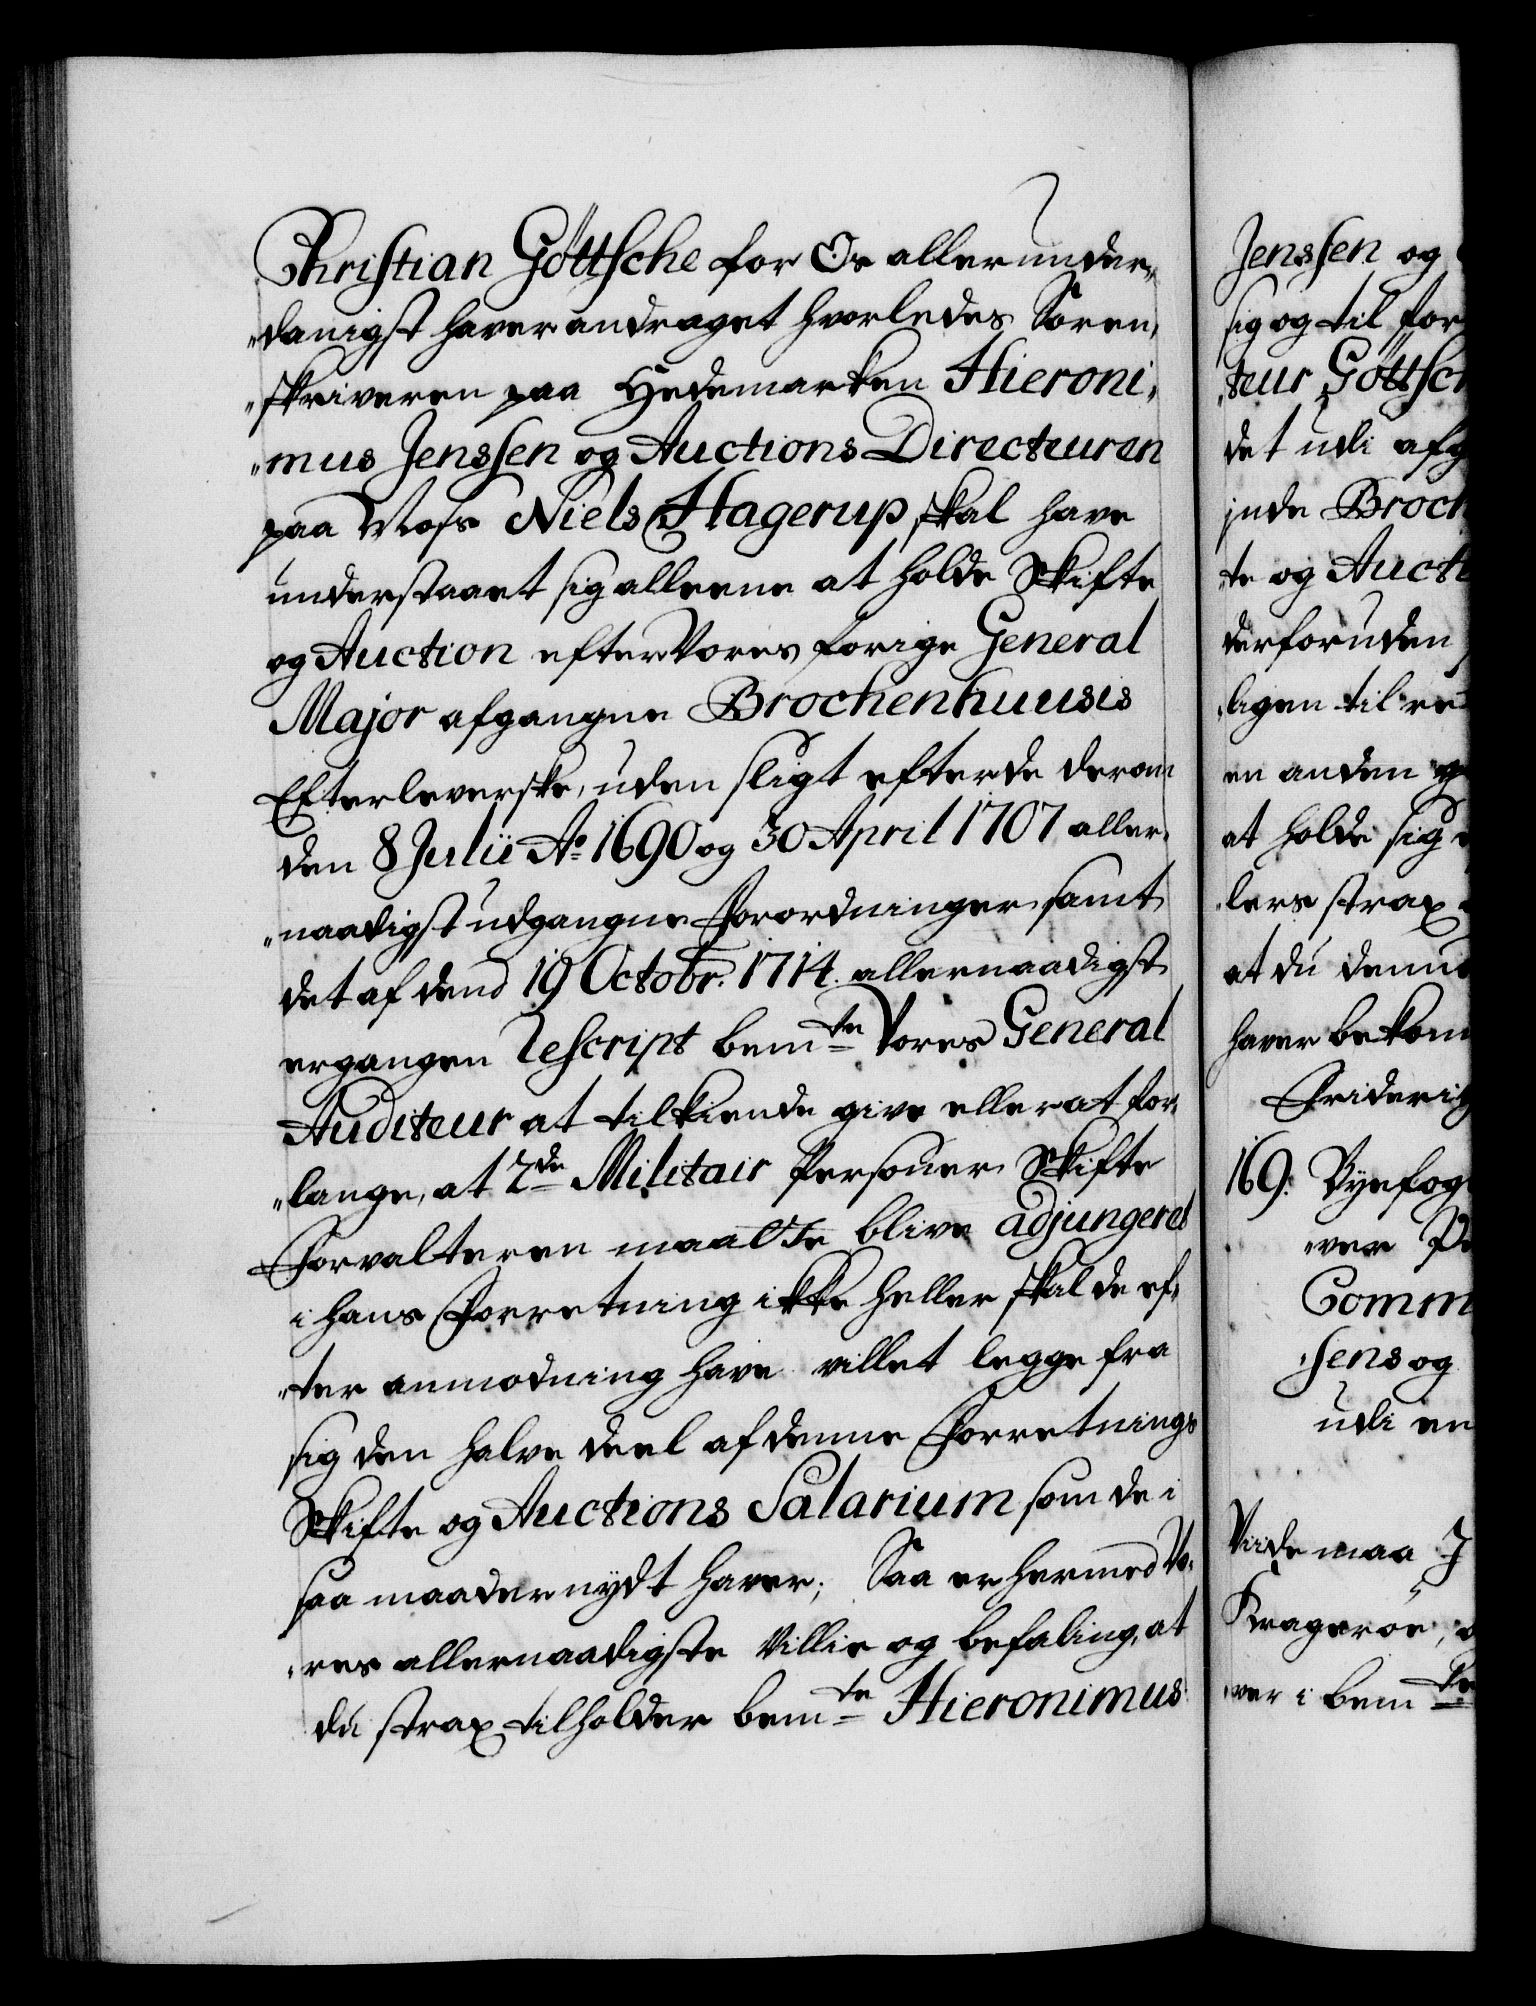 Christian Göttsche for Os allerunder„
„danigst haver andraget hvorledes Soren„
„skriveren paa Hedemarken Hieroni„
„mus Jenssen og Auctions Directeuren
paa Moss Niels Hagerup skal have
understaaet sig alleene at holde Skifte
og Auction efter Vores forige General
Major afgangne Brochenhuusis
Efterleverske, uden sligt efter de derom
den 8 Julii Ao 1690 og 30 April 1707 aller„
„naadigst udgangne Forordninger samt
det af dend 19 Octobr. 1714. allernaadigst
ergangen Rescript bemte Vores General
Auditeur at tilkiende give eller at for„
„lange, at 2de Militair Personer Skifte
Forvalteren maatte blive adjungered
i hans Forretning ikke heller skal de ef„
„ter anmodning have villet legge fra
sig den halve deel af denne Forretnings
Skifte og Auctions Salarium som de i
saa maader nydt haver; Saa er hermed Vo„
„res allernaadigste Villie og befaling, at
du strax tilholder bemte Hieronimus
Jenssen og
sig og til for
„teur Göttsch
det udi afg
inde Broch
te og Aucti
derforuden
„ligen til re
en anden
at holde sig
„lers strax
at du denne
haver bekom
Friderig
169. Byefog
„ver
Comm
„sens og
udi en
Viide maa I
Kragerøe,
„ver i bemte